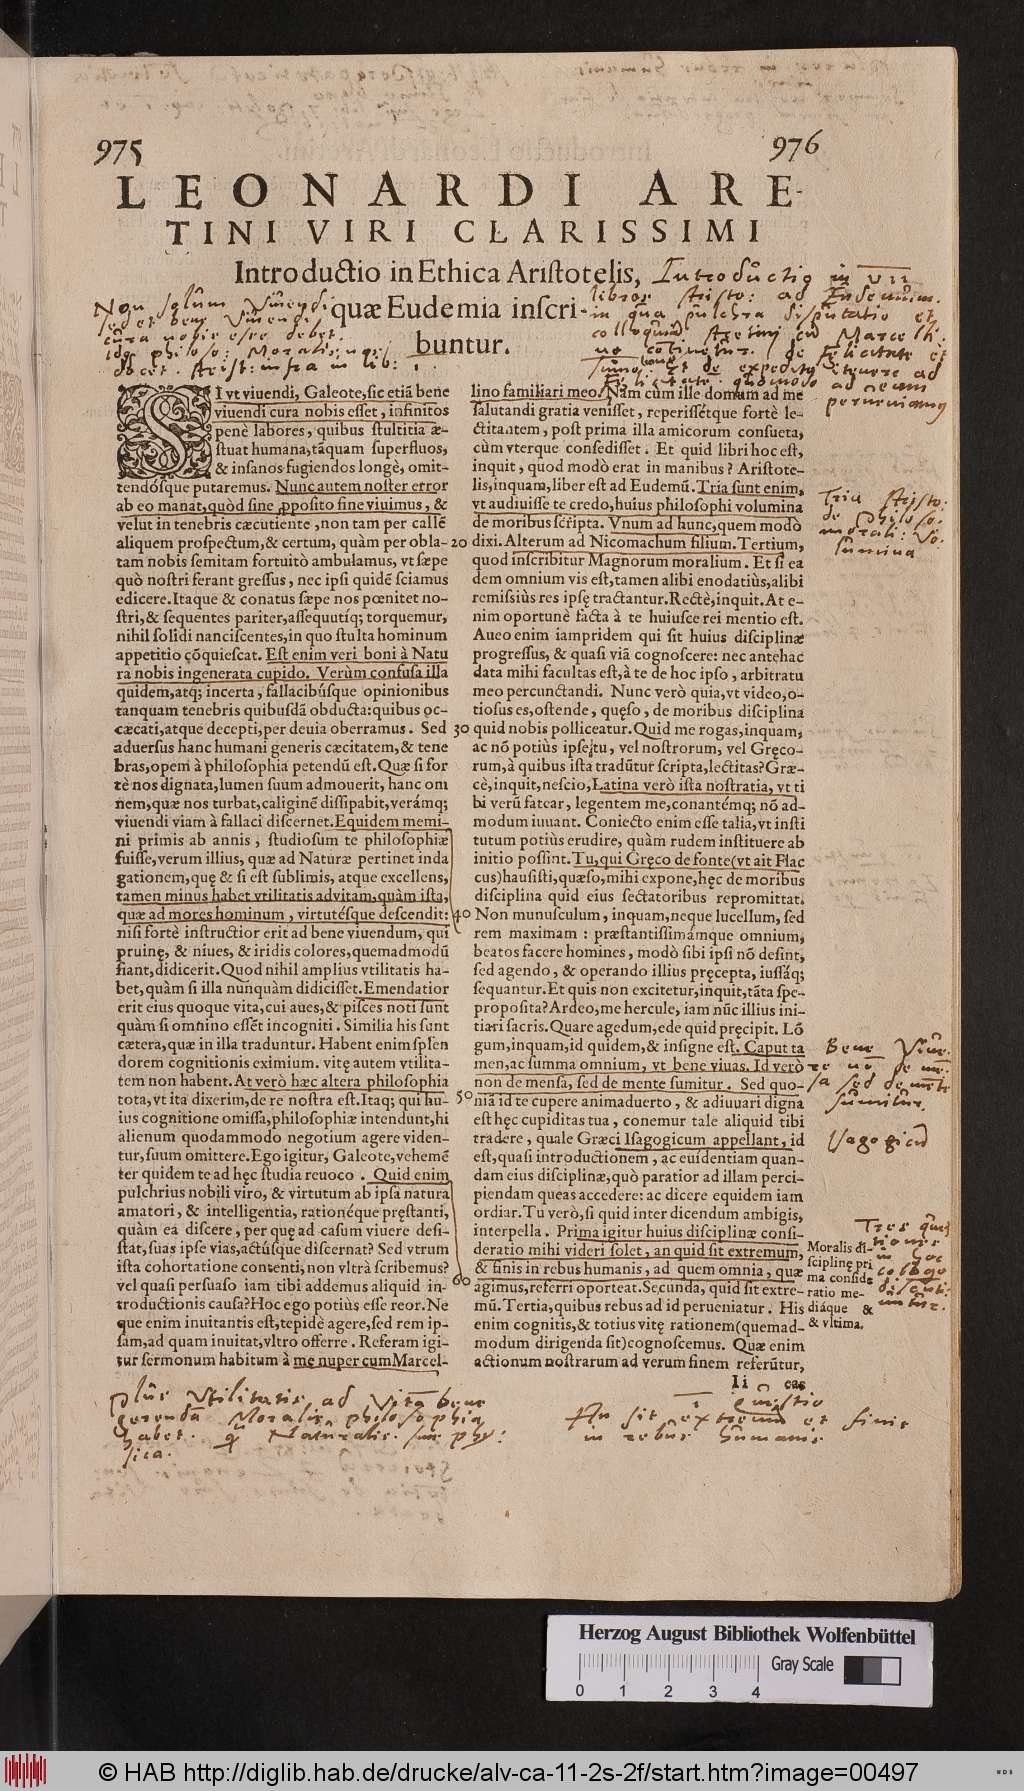 975
976
LEONARDI ARE-
TINI VIRI CLARISSIMI
Introductio in Ethica Aristotelis,
quæ Eudemia inscri-
buntur.
Introductio in VII
libros Aristo: ad Eudemium.
in qua pulchra disputatio et
colloquium Aretini cum Marcelli-
no continetur. de felicitate et
summo bono. Et de expedito itinere ad
felicitatem. quomodo ad eam
perueniamus
Non solum Viuendi
sed et bene Viuendi
cura nobis esse debet.
docet. Arist: infra in lib: 1.
SI vt viuendi, Galeote, sic etiã bene
viuendi cura nobis esset, infinitos
penè labores, quibus stultitia æ-
stuat humana, tãquam superfluos,
& insanos fugiendos longè, omit-
tendósque putaremus. Nunc autem noster error
ab eo manat, quòd sine ꝓposito fine viuimus, &
velut in tenebris cæcutiente, non tam per callẽ
aliquem prospectum, & certum, quàm per obla-
tam nobis semitam fortuitò ambulamus, vt sæpe
quò nostri ferant gressus, nec ipsi quidẽ sciamus
edicere. Itaque & conatus sæpe nos pœnitet no-
stri, & sequentes pariter, assequutíq; torquemur,
nihil solidi nanciscentes, in quo stulta hominum
appetitio cõquiescat. Est enim veri boni à Natu
ra nobis ingenerata cupido. Verùm confusa illa
quidem, atq; incerta, fallacibúsque opinionibus
tanquam tenebris quibusdã obducta: quibus oc-
cæcati, atque decepti, per deuia oberramus. Sed
aduersus hanc humani generis cæcitatem, & tene
bras, opem à philosophia petendũ est. Quæ si for
tè nos dignata, lumen suum admouerit, hanc om
nem, quæ nos turbat, caliginẽ dissipabit, verámq;
viuendi viam à fallaci discernet. Equidem memi-
ni primis ab annis, studiosum te philosophiæ
fuisse, verum illius, quæ ad Naturæ pertinet inda
gationem, quę & si est sublimis, atque excellens,
tamen minus habet vtilitatis ad vitam, quàm ista,
quæ ad mores hominum, virtutésque descendit:
nisi fortè instructior erit ad bene viuendum, qui
pruinę, & niues, & iridis colores, quemadmodũ
fiant, didicerit. Quod nihil amplius vtilitatis ha-
bet, quàm si illa nunquàm didicisset. Emendatior
erit eius quoque vita, cui aues, & pisces noti sunt
quàm si omnino essẽt incogniti. Similia his sunt
cætera, quæ in illa traduntur. Habent enim splen
dorem cognitionis eximium. vitę autem vtilita-
tem non habent. At verò hæc altera philosophia
tota, vt ita dixerim, de re nostra est. Itaq; qui hu-
ius cognitione omissa, philosophiæ intendunt, hi
alienum quodammodo negotium agere viden-
tur, suum omittere. Ego igitur, Galeote, vehemẽ
ter quidem te ad hęc studia reuoco. Quid enim
pulchrius nobili viro, & virtutum ab ipsa natura
amatori, & intelligentia, rationéque pręstanti,
quàm ea discere, per quę ad casum viuere desi-
stat, suas ipse vias, actúsque discernat? Sed vtrum
ista cohortatione contenti, non vltrà scribemus?
vel quasi persuaso iam tibi addemus aliquid in-
troductionis causa? Hoc ego potiùs esse reor. Ne
que enim inuitantis est, tepidè agere, sed rem ip-
sam, ad quam inuitat, vltro offerre. Referam igi-
tur sermonum habitum à me nuper cum Marcel-
20
30
40
50
60
lino familiari meo. Nam cùm ille domum ad me
salutandi gratia venisset, reperissétque fortè le-
ctitantem, post prima illa amicorum consueta,
cùm vterque consedisset. Et quid libri hoc est,
inquit, quod modò erat in manibus? Aristote-
lis, inquam, liber est ad Eudemũ. Tria sunt enim,
vt audiuisse te credo, huius philosophi volumina
de moribus scripta. Vnum ad hunc, quem modò
dixi. Alterum ad Nicomachum filium. Tertium,
quod inscribitur Magnorum moralium. Et si ea
dem omnium vis est, tamen alibi enodatiùs, alibi
remissiùs res ipsę tractantur. Rectè, inquit. At e-
nim oportunè facta à te huiusce rei mentio est.
Aueo enim iampridem qui sit huius disciplinæ
progressus, & quasi viã cognoscere: nec antehac
data mihi facultas est, à te de hoc ipso, arbitratu
meo percunctandi. Nunc verò quia, vt video, o-
tiosus es, ostende, quęso, de moribus disciplina
quid nobis polliceatur. Quid me rogas, inquam,
ac nõ potiùs ipse tu, vel nostrorum, vel Gręco-
rum, à quibus ista tradũtur scripta, lectitas? Græ-
cè, inquit, nescio, Latina verò ista nostratia, vt ti
bi verũ fatear, legentem me, conantémq; nõ ad-
modum iuuant. Coniecto enim esse talia, vt insti
tutum potiùs erudire, quàm rudem instituere ab
initio possint. Tu, qui Gręco de fonte (vt ait Flac
cus) hausisti, quæso, mihi expone, hęc de moribus
disciplina quid eius sectatoribus repromittat.
Non munusculum, inquam, neque lucellum, sed
rem maximam: præstantissimámque omnium,
beatos facere homines, modò sibi ipsi nõ desint,
sed agendo, & operando illius pręcepta, iussáq;
sequantur. Et quis non excitetur, inquit, tãta spe-
proposita? Ardeo, me hercule, iam nũc illius ini-
tiari sacris. Quare agedum, ede quid pręcipit. Lõ
gum, inquam, id quidem, & insigne est. Caput ta
men, ac summa omnium, vt bene viuas. Id verò
non de mensa, sed de mente sumitur. Sed quo-
niã id te cupere animaduerto, & adiuuari digna
est hęc cupiditas tua, conemur tale aliquid tibi
tradere, quale Græci Isagogicum appellant, id
est, quasi introductionem, ac euidentiam quan-
dam eius disciplinæ, quò paratior ad illam perci-
piendam queas accedere: ac dicere equidem iam
ordiar. Tu verò, si quid inter dicendum ambigis,
interpella. Prima igitur huius disciplinæ consi-
deratio mihi videri solet, an quid sit extremum,
& finis in rebus humanis, ad quem omnia, quæ
agimus, referri oporteat. Secunda, quid sit extre-
mũ. Tertia, quibus rebus ad id perueniatur. His
enim cognitis, & totius vitę rationem (quemad-
modum dirigenda sit) cognoscemus. Quæ enim
actionum nostrarum ad verum finem referũtur,
Ii eas
Tria Aristo:
de Philoso.
morali: Vo.
lumina
Bene Viue-
re no de mẽ-
sa sed de mẽte
sumitur.
Isagogicũ
Tres quæs
tiones
in hoc
colloqo
discutiũ-
untur.
Moralis di-
sciplinę pri
ma conside
ratio me-
diáque &
& vltima.
Plus Vtilitatis ad Vitã bene
gerendã Moralis philosophia
habet. quã Naturalis. siue phy:
sica.
1 Quæstio
An sit extremũ et finis
in rebus humanis
Herzog August Bibliothek Wolfenbüttel
Gray Scale
0 1 2 3 4
© HAB http://diglib.hab.de/drucke/alv-ca-11-2s-2f/start.htm?image=00497